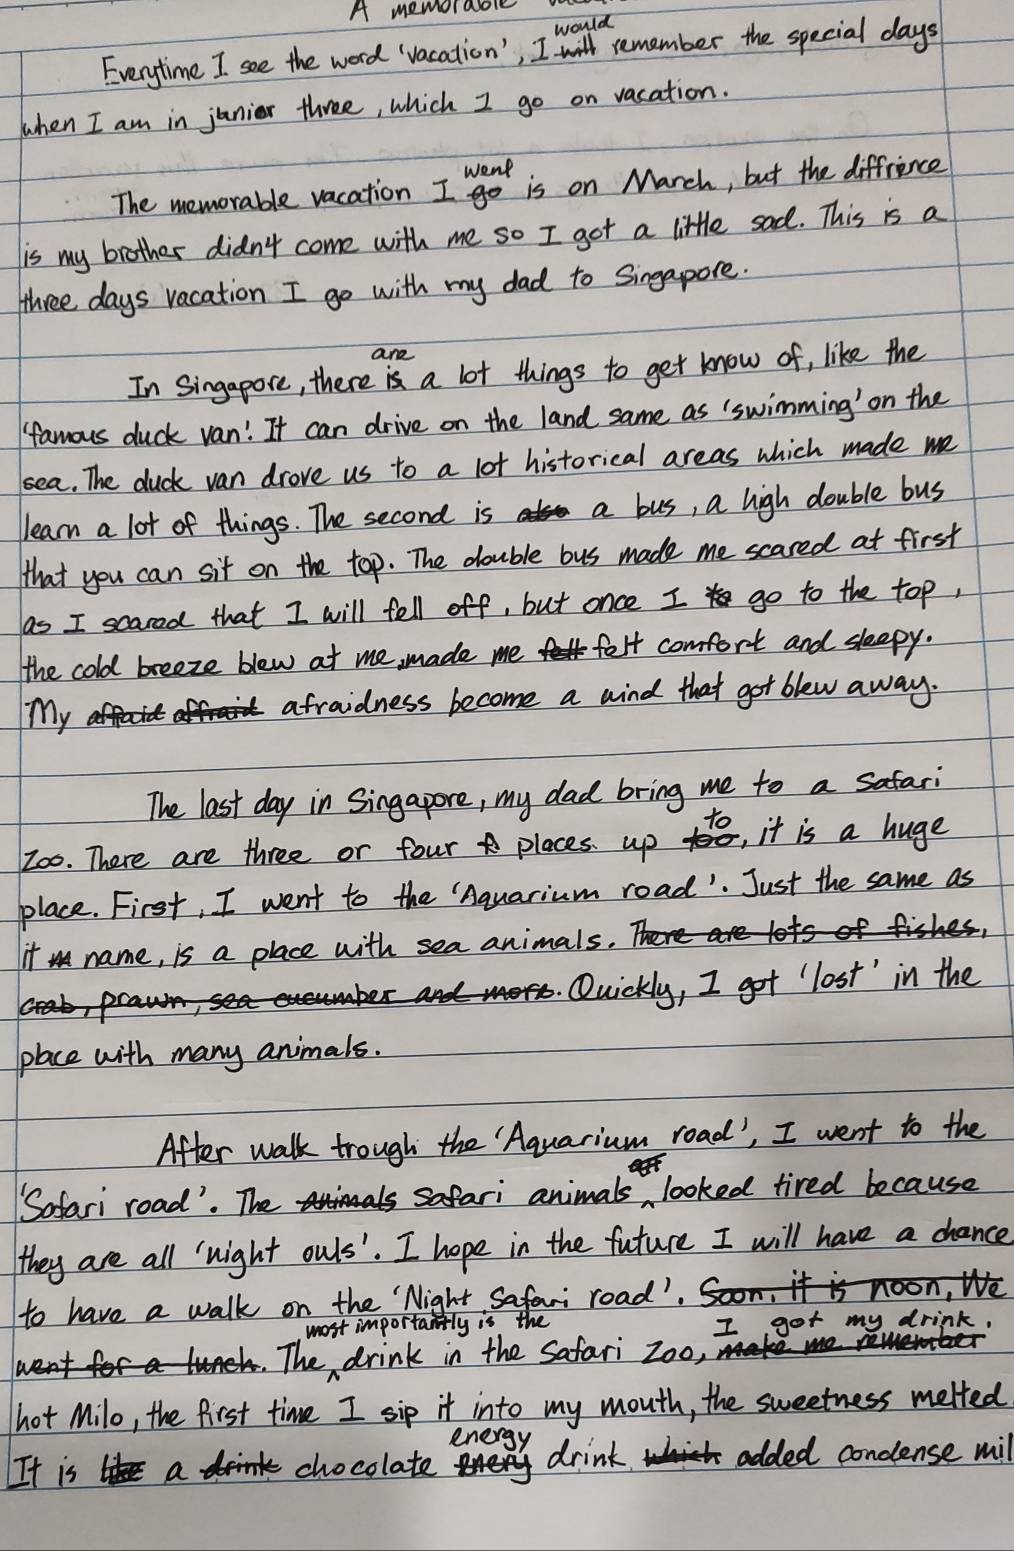 A memorable
Everytime I see the word 'vacation', I would remember the special days
when I am in junior three, which I go on vacation.
The memorable vacation I went is on March, but the diffrience
is my brother didn't come with me so I got a little sad. This is a
three days vacation I go with my dad to Singapore.
In Singapore, there are a lot things to get know of, like the
'famous duck van'. It can drive on the land same as 'swimming' on the
sea. The duck van drove us to a lot historical areas which made me
learn a lot of things. The second is also a bus, a high double bus
that you can sit on the top. The double bus made me scared at first
as I scared that I will fell off, but once I to go to the top,
the cold breeze blew at me, made me felt comfort and sleepy.
My affaid affraid afraidness become a wind that got blew away.
The last day in Singapore, my dad bring me to a Safari
Zoo. There are three or four places up to, it is a huge
place. First, I went to the 'Aquarium road'. Just the same as
it name, is a place with sea animals. There are lots of fishes,
crab, prawn, sea cucumber and more. Quickly, I got 'lost' in the
place with many animals.
After walk trough the 'Aquarium road', I went to the
'Safari road'. The animals Safari animals looked tired because
they are all 'night ouls'. I hope in the future I will have a chance
to have a walk on the 'Night Safari road'. Soon, it is noon, We
most importantly is the I got my drink.
went for a lunch. The drink in the Safari Zoo, make me remember
hot Milo, the first time I sip it into my mouth, the sweetness melted.
energy
It is like a drink chocolate enery drink which added condense mil